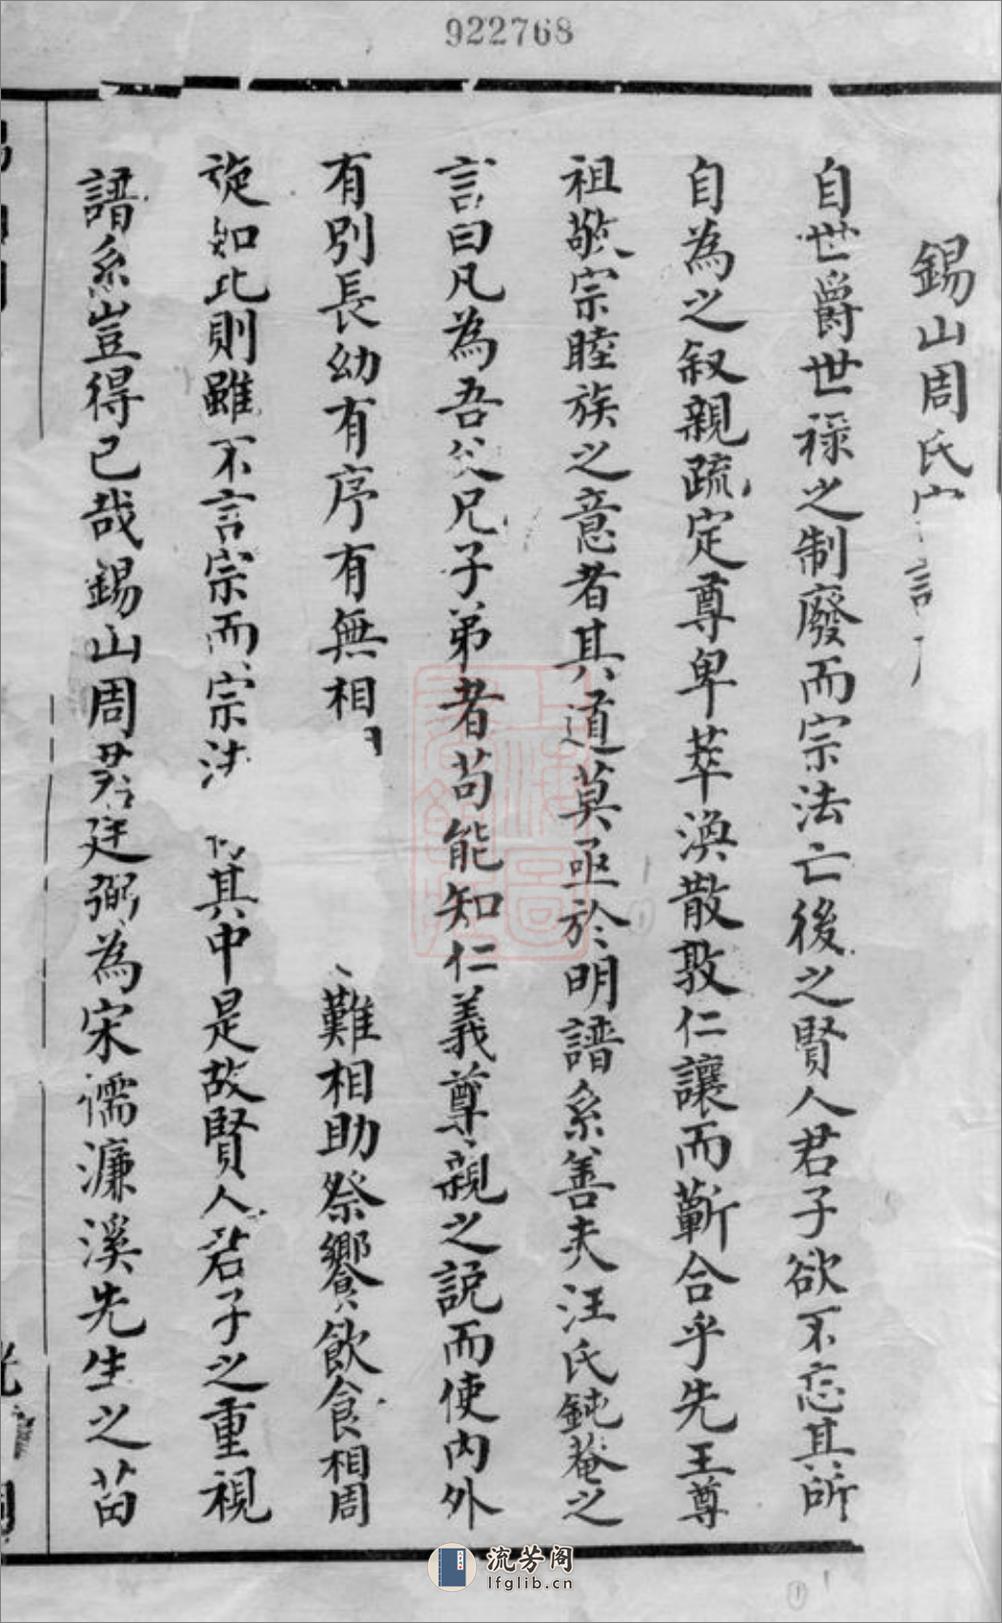 922768
錫山周氏
自世爵世祿之制廢而宗法亡後之賢人君子欲不忘其所
自為之叙親疏定尊卑萃渙散敦仁讓而蘄合乎先王尊
祖敬宗睦族之意者其道莫亟於明譜系善夫汪氏鈍菴之
言曰凡為吾父兄子弟者苟能知仁義尊親之說而使內外
有別長幼有序有無相難相助祭饗飲食相周
旋如此則雖不言宗而宗法其中是故賢人君子之重視
譜系豈得已哉錫山周君廷弼為宋儒濂溪先生之苗
流芳阁
lfglib.cn